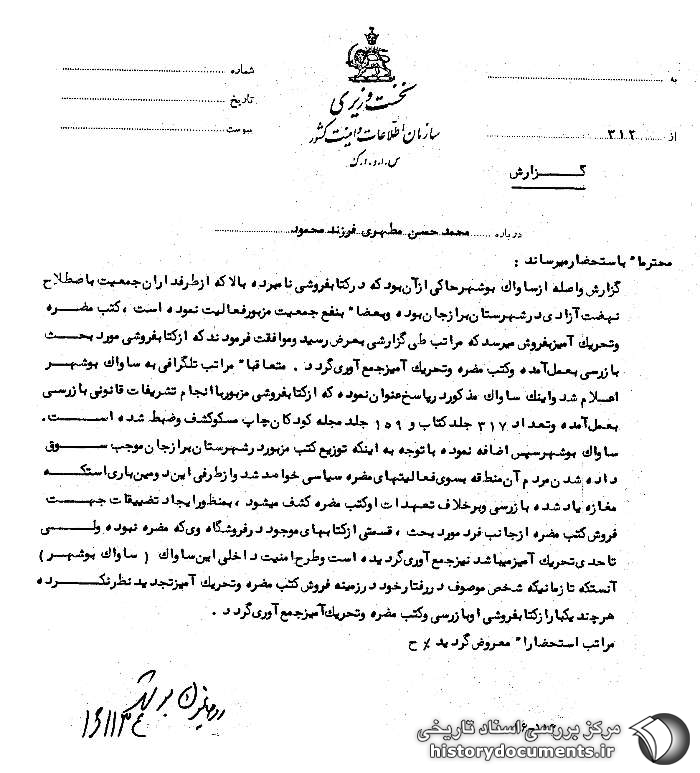 نخست وزیری
سازمان اطلاعات و امنیت کشور
س.ا.و.ا.ک
به
از ۳۱۲
شماره
تاریخ
پیوست
گزارش
درباره محمد حسن مطهری فرزند محمود
محترما" باستحضار میرساند :
گزارش واصله از ساواک بوشهر حاکی از آن بود که در کتابفروشی نامبرده بالا که از طرفداران جمعیت باصطلاح
نهضت آزادی در شهرستان برازجان بوده وبعضا" بنفع جمعیت مزبور فعالیت نموده است ، کتب مضره
وتحریک آمیز بفروش میرسد که مراتب طی گزارشی بعرض رسید وموافقت فرمودند که از کتابفروشی مورد بحث
بازرسی بعمل آمده وکتب مضره وتحریک آمیز جمع آوری گردد . متعاقبا" مراتب تلگرافی به ساواک بوشهر
اعلام شد واینک ساواک مذکور در پاسخ عنوان نموده که از کتابفروشی مزبور با انجام تشریفات قانونی بازرسی
بعمل آمده وتعداد ۳۱۷ جلد کتاب و ۱۵۹ جلد مجله کودکان چاپ مسکو کشف وضبط شده است .
ساواک بوشهر سپس اضافه نموده با توجه به اینکه توزیع کتب مزبور در شهرستان برازجان موجب سوق
داده شدن مردم آن منطقه بسوی فعالیتهای مضره سیاسی خواهد شد واز طرفی این دومین باری استکه
مغازه یاد شده بازرسی وبرخلاف تعهدات او کتب مضره کشف میشود ، بمنظور ایجاد تضییقات جهت
فروش کتب مضره از جانب فرد مورد بحث ، قسمتی از کتابهای موجود در فروشگاه وی که مضره نبوده ولی
تا حدی تحریک آمیز میباشد نیز جمع آوری گردیده است وطرح امنیت داخلی این ساواک ( ساواک بوشهر )
آنستکه تا زمانیکه شخص موصوف در رفتار خود در زمینه فروش کتب مضره وتحریک آمیز تجدید نظر نکرده
هر چند یکبار از کتابفروشی او بازرسی وکتب مضره وتحریک آمیز جمع آوری گردد .
مراتب استحضارا" معروض گردید٪ ح
مرکز بررسی اسناد تاریخی
historydocuments.ir